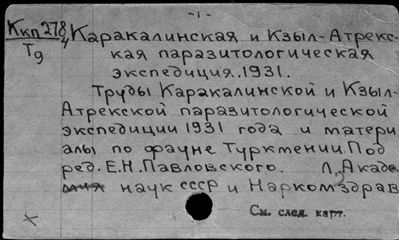 -1-
Ккп 278/4 Каракалинская и Кзыл-Атрекс-
Тд
кая паразитологическая
экспедиция. 1931.
Труды Каракалинской и Кзыл-
Атрекской паразитологической
экспедиции 1931 года и матери
алы по фауне Туркмении. Под
ред. Е.Н. Павловского. Л., Акаде
мия наук СССР и Наркомздрав
См. след. карт.